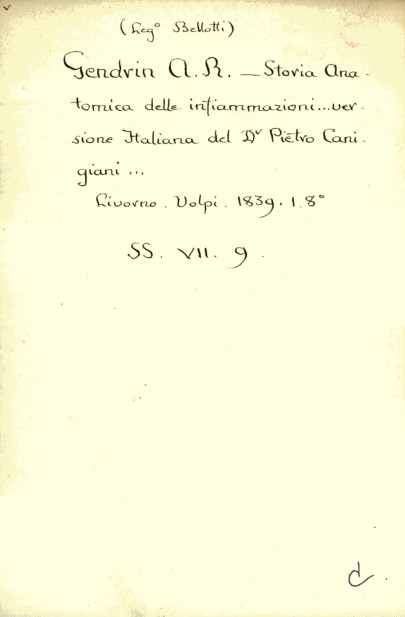 (Leg° Bellotti)
Gendrin A. R. — Storia Ana-
tomica delle infiammazioni...ver-
sione Italiana del Dr Pietro Cani-
giani ...
Livorno. Volpi. 1839. 1. 8°
SS. VII. 9.